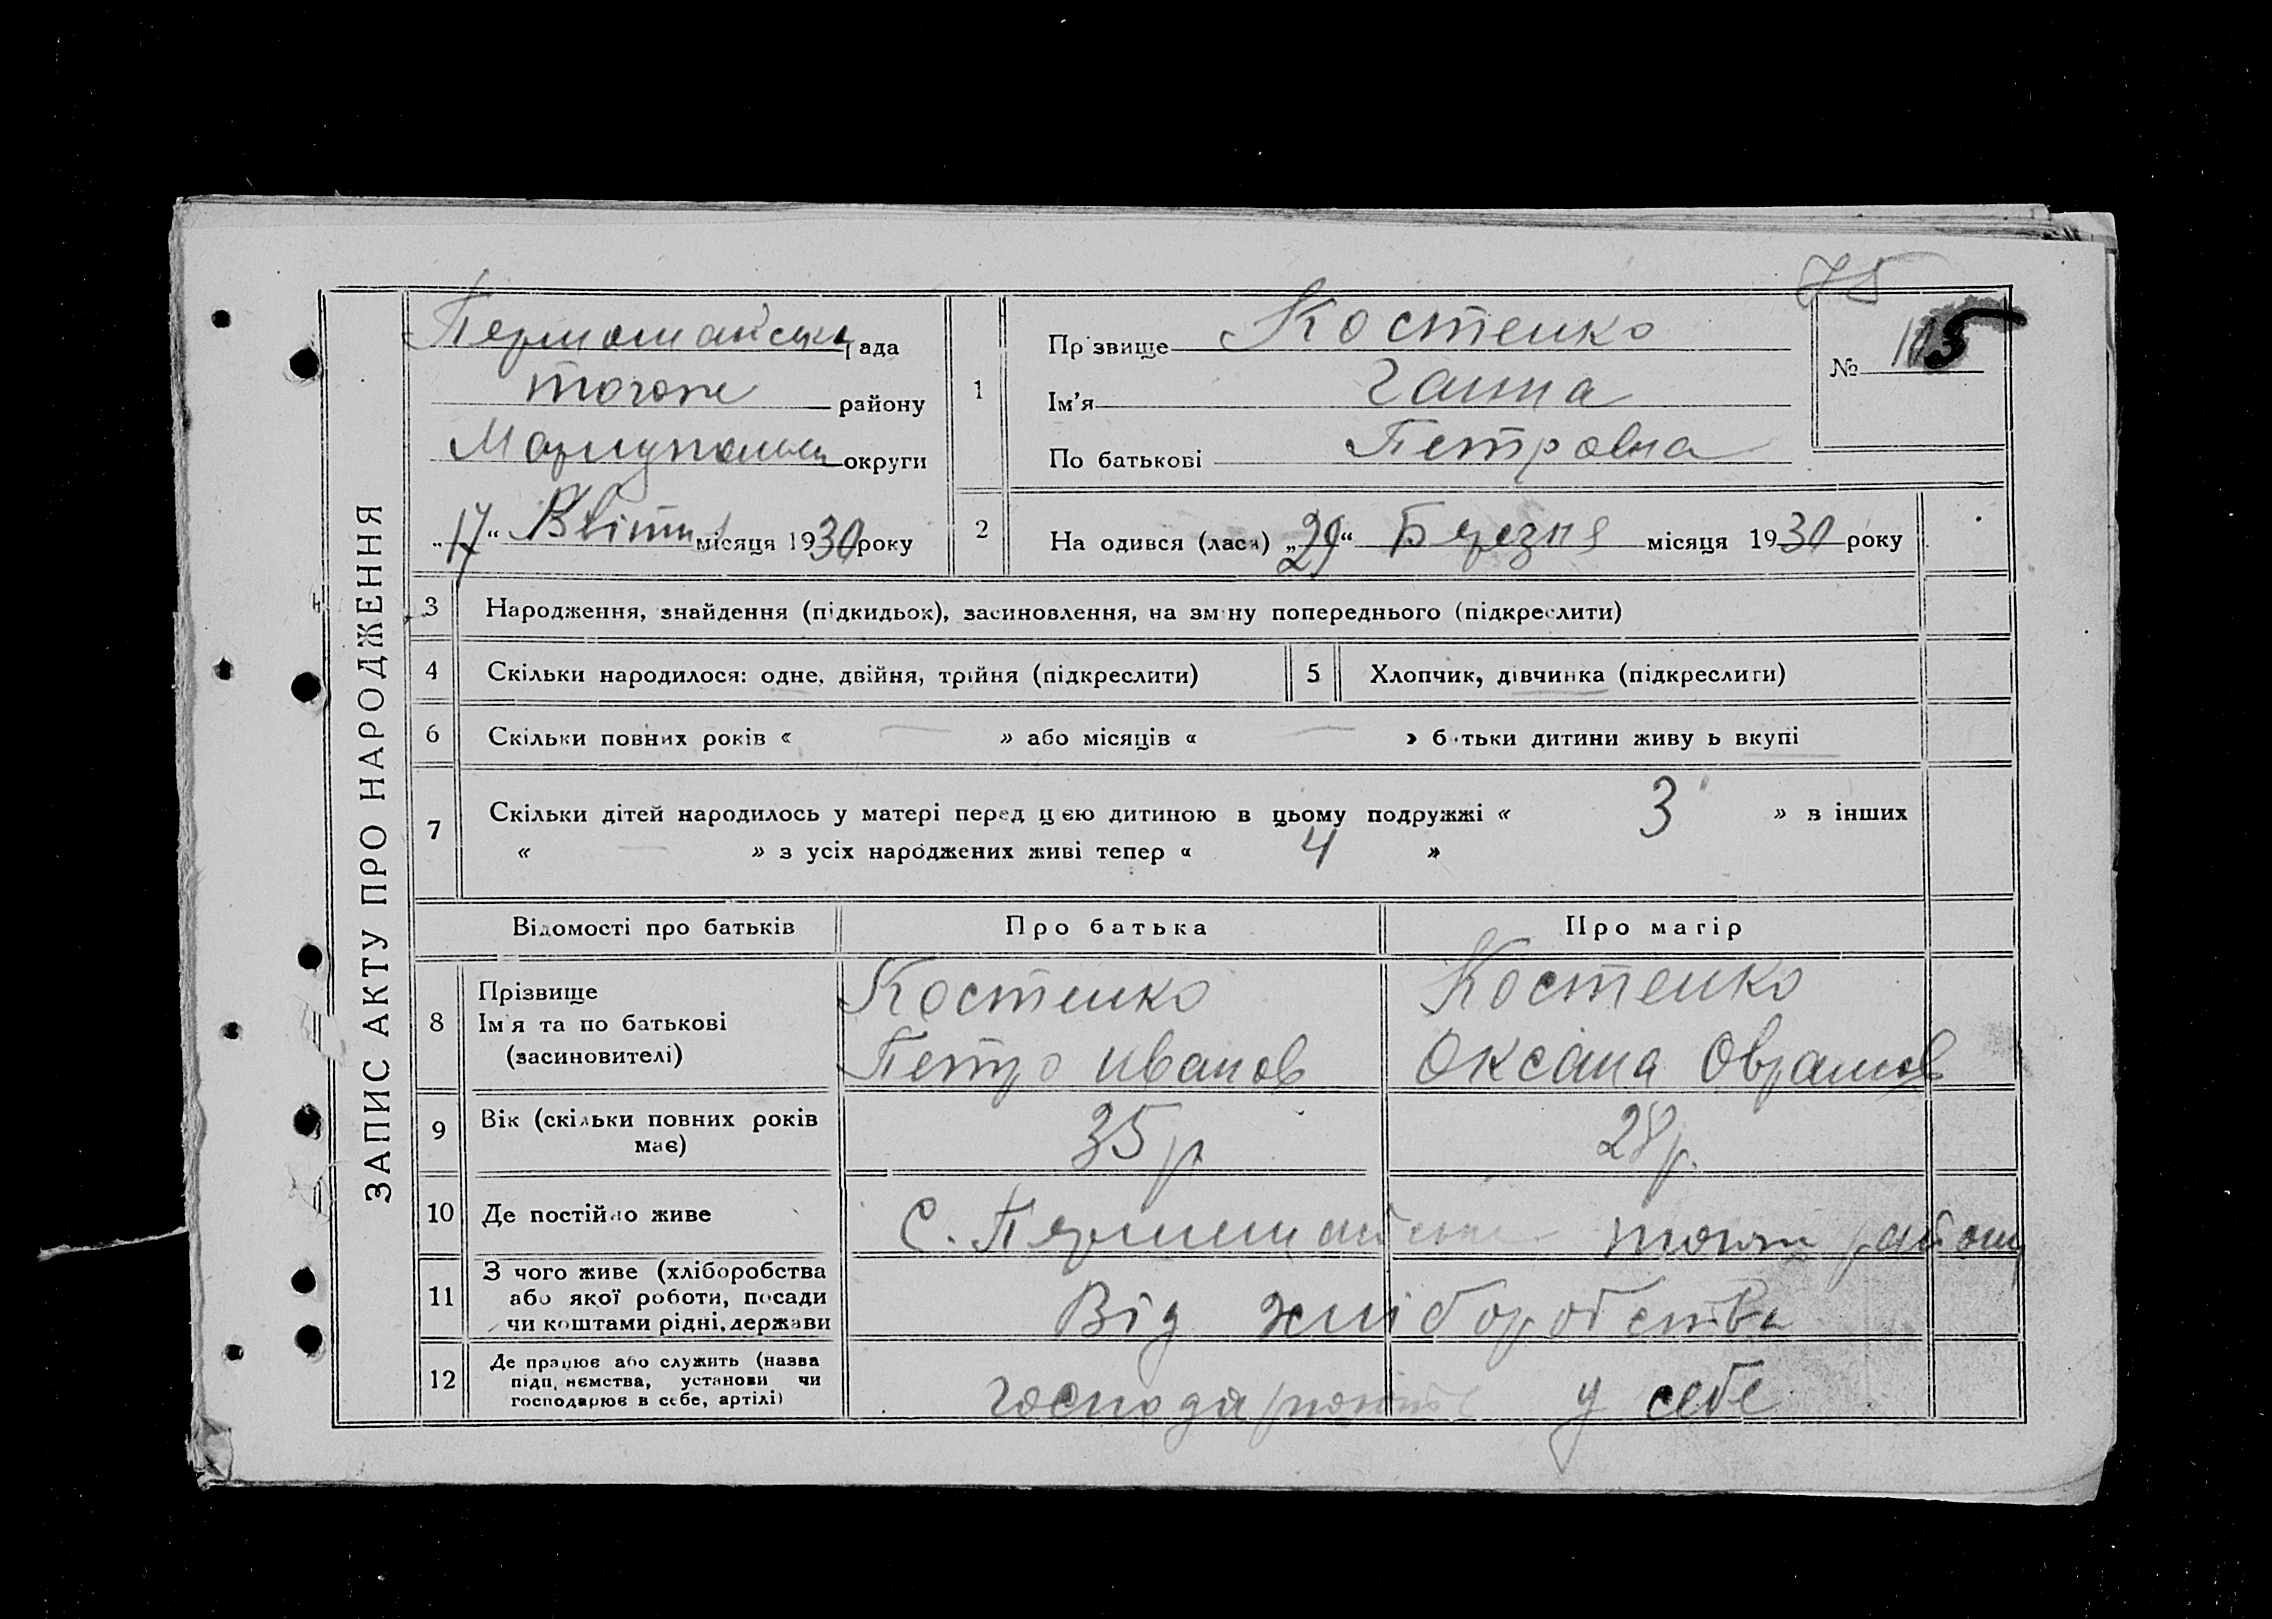 ЗАПИС АКТУ ПРО НАРОДЖЕННЯ
75
Першомайська рада
тогож району
Маріупольськ округи
„17“ Квітня місяця 1930 року
1
Прізвище Костенко
Ім'я Ганна
По батькові Петровна
№ 105
2
На одився (лася) „29“ Березня місяця 1930 року
3 Народження, знайдення (підкидьок), засиновлення, на зміну попереднього (підкреслити)
4 Скільки народилося: одне, двійня, трійня (підкреслити)
5 Хлопчик, дівчинка (підкреслити)
6 Скільки повних років « — » або місяців « — » батьки дитини живу ь вкупі
7 Скільки дітей народилось у матері перед цією дитиною в цьому подружжі « 3 » в інших
« — » з усіх народжених живі тепер « 4 »
Відомості про батьків Про батька Про матір
8 Прізвище
Ім'я та по батькові
(засиновителі)
Костенко
Петро Иванов
Костенко
Оксана Оврамов
9 Вік (скільки повних років
має)
35 р
28 р.
10 Де постійно живе
С. Першомайське тогож району
11 З чого живе (хліборобства
або якої роботи, посади
чи коштами рідні, держави
Від хліборобства
12 Де працює або служить (назва
підприємства, установи чи
господарює в себе, артілі)
господарюють у себе